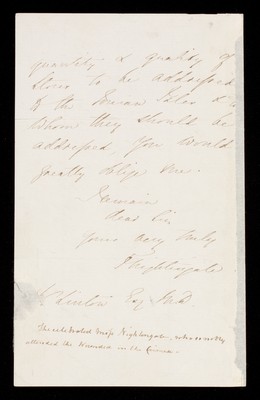 quantity & quality of
Stores to be addressed
to the Roman Isles & to
Whom they should be
addressed, You would
greatly oblige me.
I remain
dear Sir
Yours very truly
F Nightingale
W Linton Esq M.D.
The celebrated Miss Nightingale, who so nobly
attended the Wounded in the Crimea.